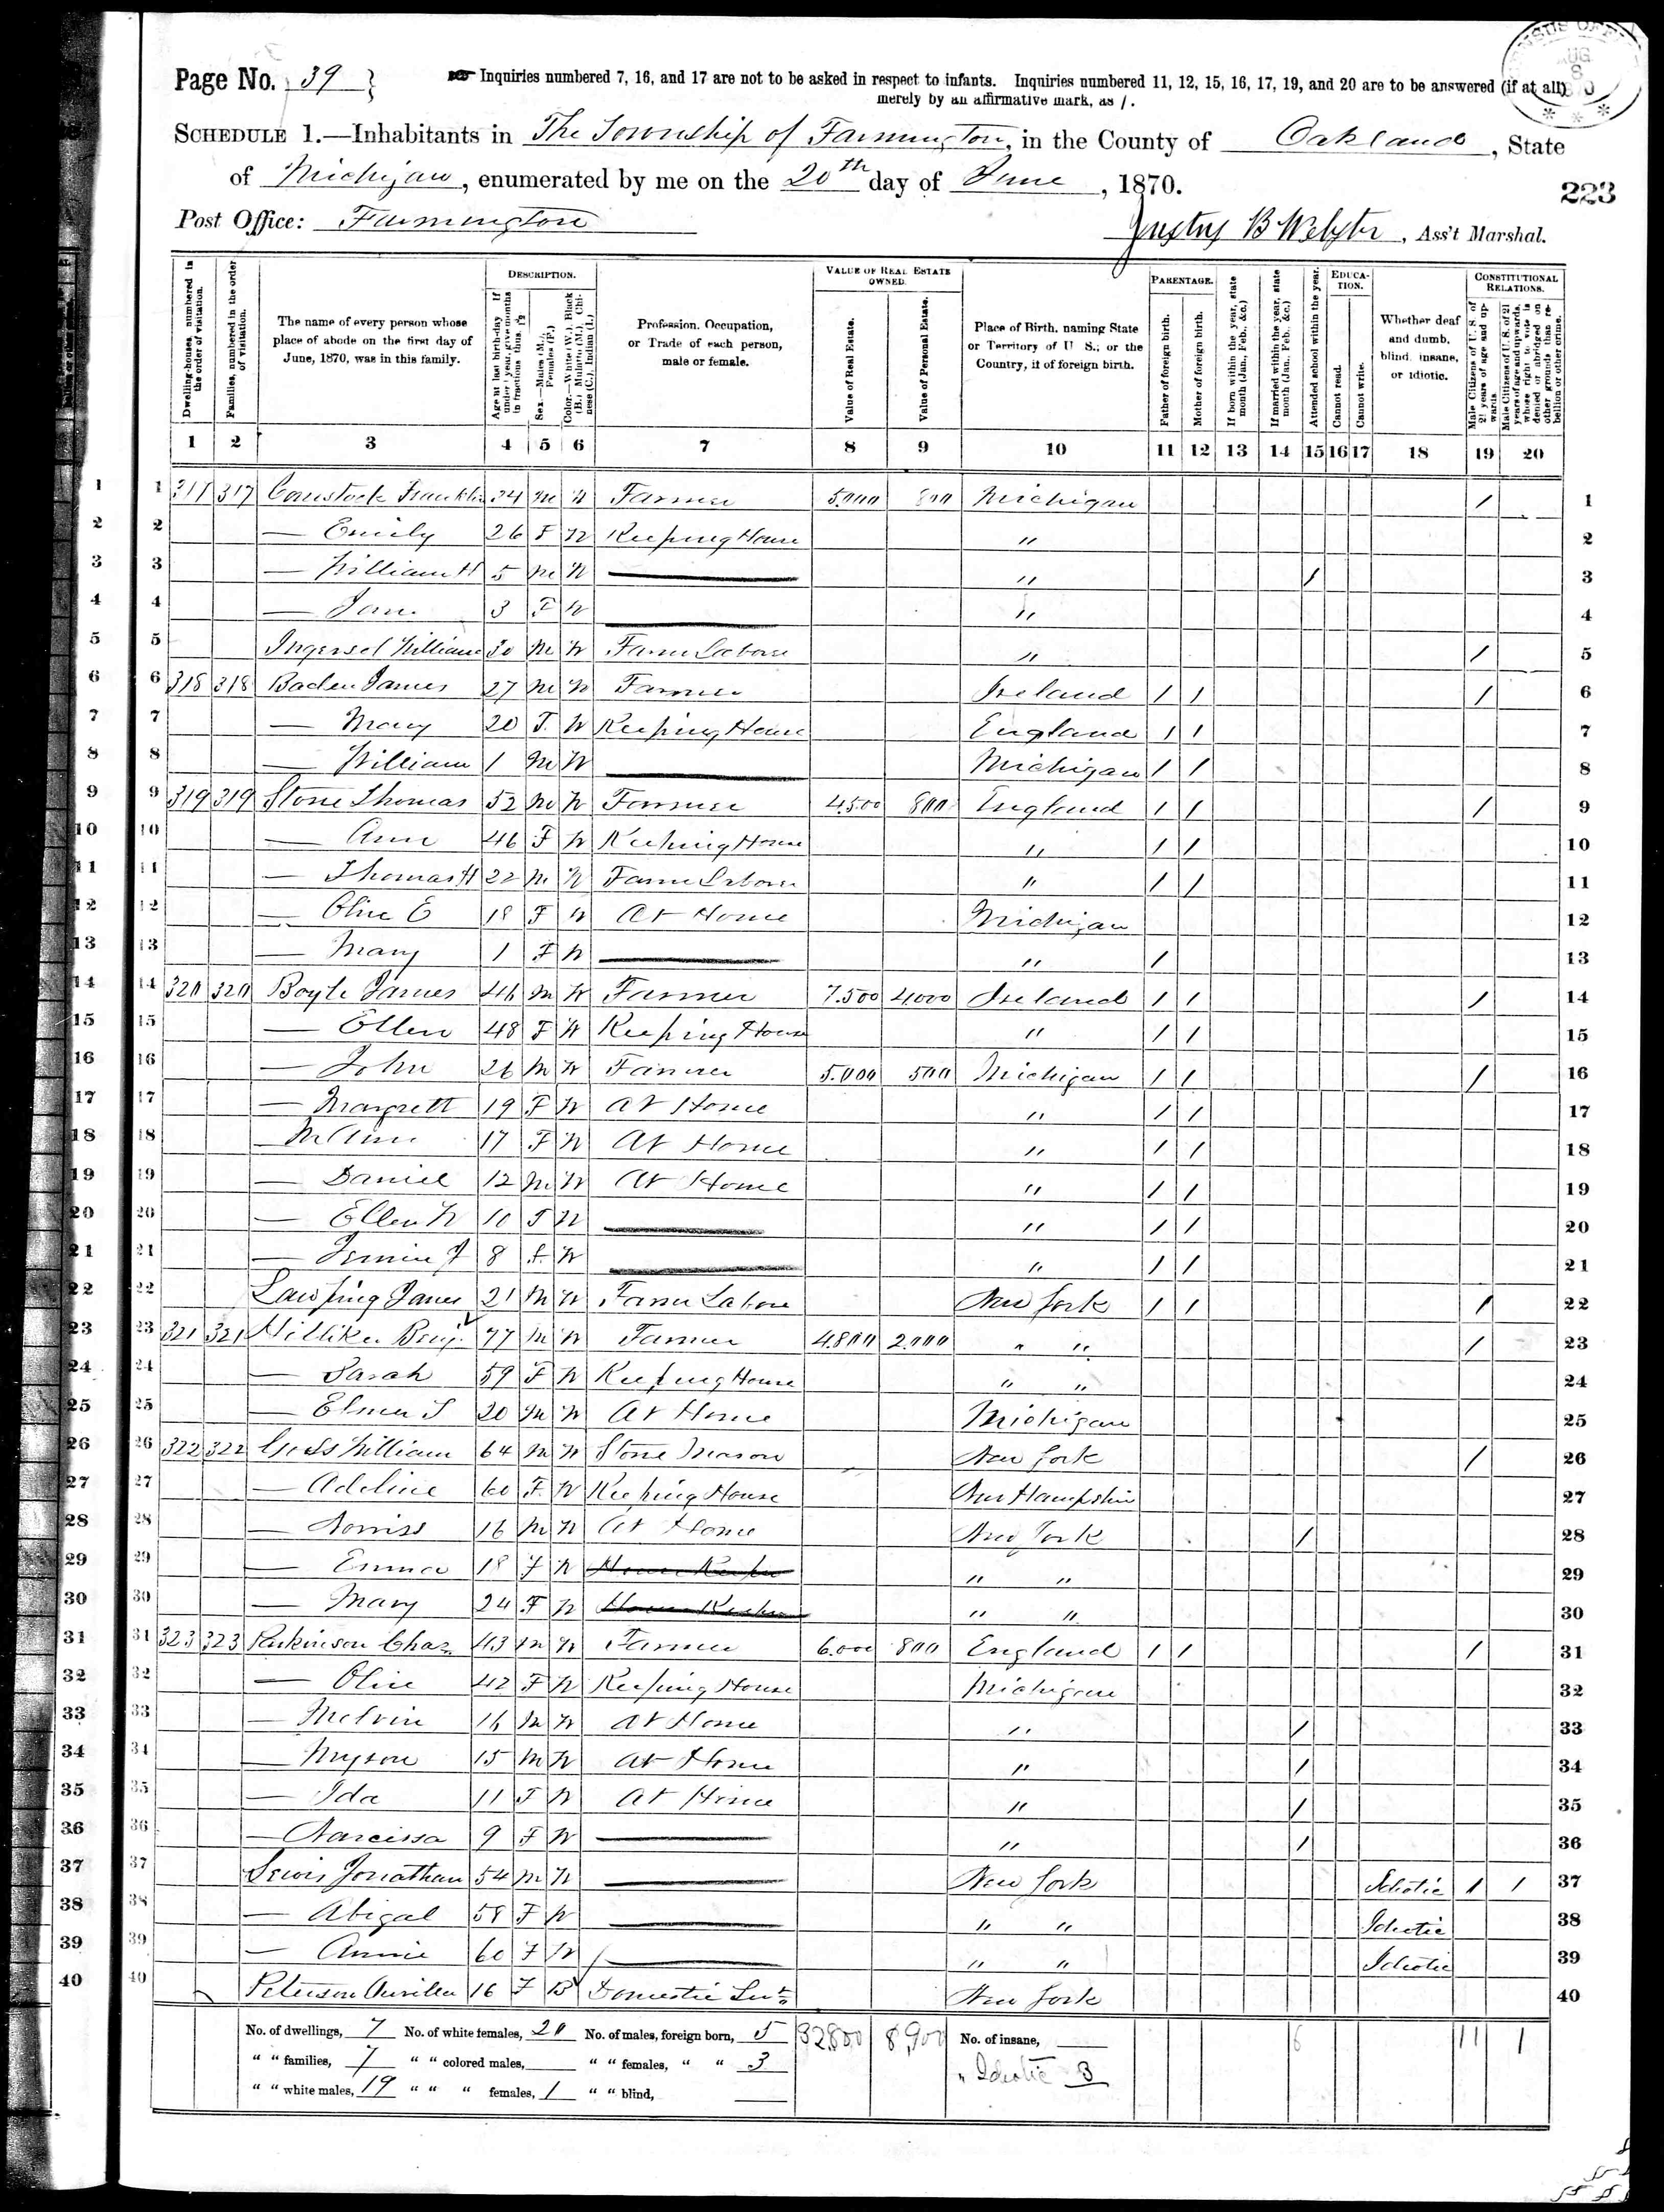 Page No. 39
Inquiries numbered 7, 16, and 17 are not to be asked in respect to infants. Inquiries numbered 11, 12, 15, 16, 17, 19, and 20 are to be answered (if at all)
merely by an affirmative mark, as /.
SCHEDULE 1.—Inhabitants in The Township of Farmington, in the County of Oakland, State
of Michigan, enumerated by me on the 20th day of June, 1870.
223
Post Office: Farmington
Justus B Webster, Ass't Marshal.
Dwelling-houses, numbered in the order of visitation.
Families, numbered in the order of visitation.
The name of every person whose place of abode on the first day of June, 1870, was in this family.
DESCRIPTION.
Age at last birth-day. If under 1 year, give months in fractions, thus,
Sex.—Males (M.), Females (F.)
Color.—White (W.), Black (B.), Mulatto (M.), Chinese (C.), Indian (I.)
Profession, Occupation, or Trade of each person, male or female.
VALUE OF REAL ESTATE OWNED.
Value of Real Estate.
Value of Personal Estate.
Place of Birth, naming State or Territory of U. S.; or the Country, if of foreign birth.
PARENTAGE.
Father of foreign birth.
Mother of foreign birth.
If born within the year, state month (Jan., Feb., &c.)
If married within the year, state month (Jan., Feb., &c.)
Attended school within the year.
EDUCATION.
Cannot read.
Cannot write.
Whether deaf and dumb, blind, insane, or idiotic.
CONSTITUTIONAL RELATIONS.
Male Citizens of U. S. of 21 years of age and upwards.
Male Citizens of U. S. of 21 years of age and upwards, whose right to vote is denied or abridged on other grounds than rebellion or other crime.
1 2 3 4 5 6 7 8 9 10 11 12 13 14 15 16 17 18 19 20
1 317 317 Comstock Franklin 34 M W Farmer 5,000 800 Michigan / 1
2 — Emily 26 F W Keeping House " 2
3 — William H 5 M W " / 3
4 — Jane 3 F W " 4
5 Ingersel William 30 M W Farm Labore " / 5
6 318 318 Baden James 27 M W Farmer Ireland / / / 6
7 — Mary 20 F W Keeping House England / / 7
8 — William 1 M W Michigan / / 8
9 319 319 Stone Thomas 52 M W Farmer 4500 800 England / / / 9
10 — Ann 46 F W Keeping House " / / 10
11 — Thomas H 22 M W Farm Labore " / / 11
12 — Olive E 18 F W At Home Michigan 12
13 — Mary 1 F W " / 13
14 320 320 Boyle James 46 M W Farmer 7.500 4000 Ireland / / / 14
15 — Ellen 48 F W Keeping House " / / 15
16 — John 26 M W Farmer 5.000 500 Michigan / / / 16
17 — Margrett 19 F W At Home " / / 17
18 — M Ann 17 F W At Home " / / 18
19 — Daniel 12 M W At Home " / / 19
20 — Ellen W 10 F W " / / 20
21 — 8 F W " / / 21
22 James 21 M W Farm Labore New York / / / 22
23 321 321 Milliken Benj. 77 M W Farmer 4.800 2.000 " " / 23
24 — Sarah 59 F W Keeping House " " 24
25 — Elmer S 20 M W At Home Michigan 25
26 322 322 William 64 M W Stone Mason New York / 26
27 — Adeline 60 F W Keeping House New Hampshire 27
28 — Norriss 16 M W At Home New York / 28
29 — Emma 18 F W House Keeper " " 29
30 — Mary 24 F W House Keeper " " 30
31 323 323 Parkinson Chas. 43 M W Farmer 6.000 800 England / / / 31
32 — Olive 42 F W Keeping House Michigan 32
33 — Melvin 16 M W At Home " / 33
34 — Myron 15 M W At Home " / 34
35 — Ida 11 F W At Home " / 35
36 — Narcissa 9 F W " / 36
37 Lewis Jonathan 54 M W New York Idiotic 1 1 37
38 — Abigal 58 F W " " Idiotic 38
39 — Annie 60 F W " " Idiotic 39
40 Peterson 16 F B Domestic Svt. New York 40
No. of dwellings, 7 No. of white females, 20 No. of males, foreign born, 5 32800 8,900 No. of insane, 6 11 1
" " families, 7 " " colored males, " " females, " " 3 " Idiotic 3
" " white males, 19 " " " females, 1 " " blind,